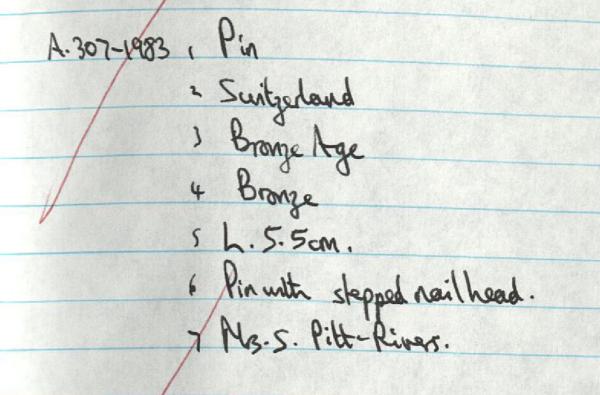 A.307-1983 1 Pin
2 Switzerland
3 Bronze Age
4 Bronze
5 L. 5.5cm.
6 Pin with stepped nail head.
7 Mrs. S. Pitt-Rivers.